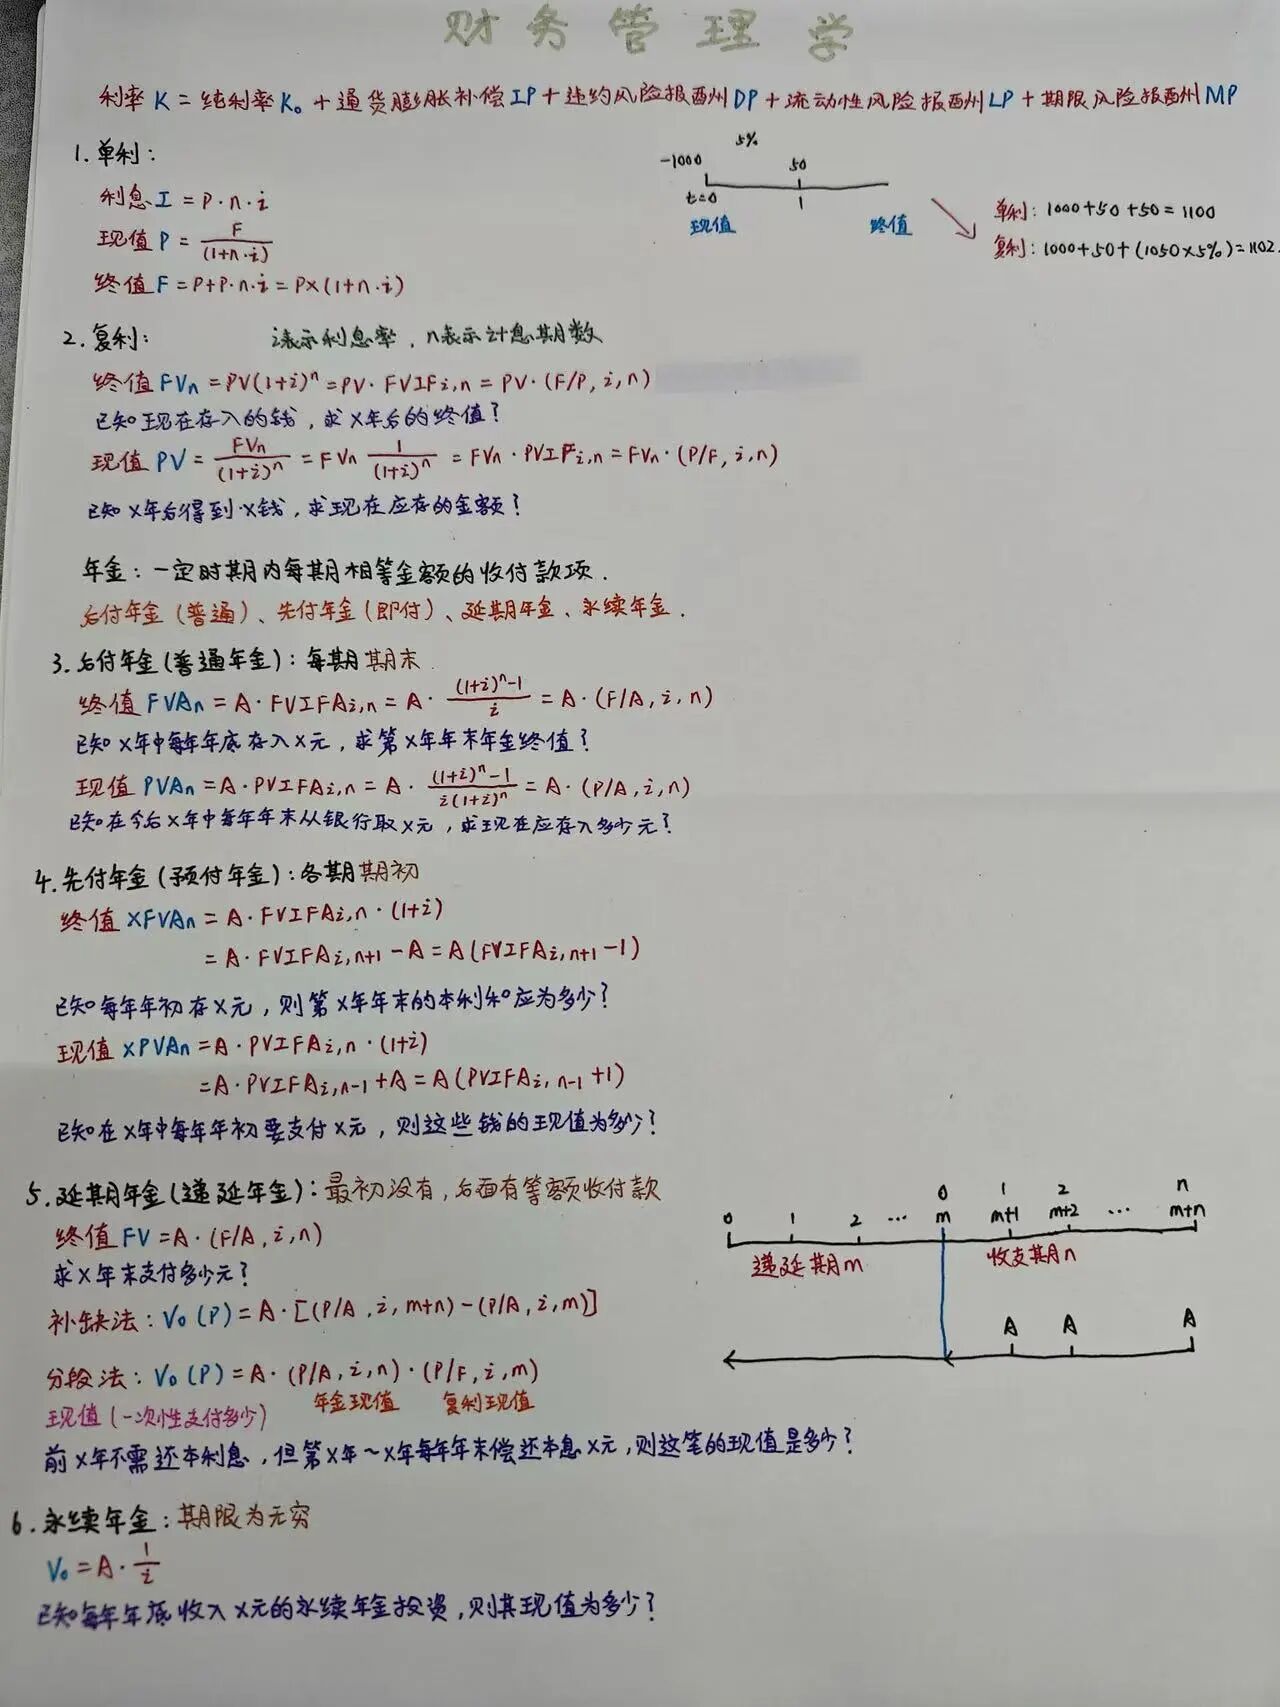 财务管理学
利率 K = 纯利率 K₀ + 通货膨胀补偿 IP + 违约风险报酬州 DP + 流动性风险报酬州 LP + 期限风险报酬州 MP
1. 单利:
利息 I = P·n·i
现值 P = F/(1+n·i)
终值 F = P+P·n·i = P×(1+n·i)
5%
-1000 50
t=0 1
现值 终值
单利: 1000+50+50=1100
复利: 1000+50+(1050×5%)=1102.
2. 复利: i表示利息率, n表示计息期数
终值 FVn = PV(1+i)ⁿ = PV·FVIFi,n = PV·(F/P, i, n)
已知现在存入的钱, 求X年后的终值?
现值 PV = FVn/(1+i)ⁿ = FVn 1/(1+i)ⁿ = FVn·PVIFi,n = FVn·(P/F, i, n)
已知X年后得到X钱, 求现在应存的金额?
年金: 一定时期内每期相等金额的收付款项.
后付年金(普通)、先付年金(即付)、延期年金、永续年金.
3. 后付年金(普通年金): 每期期末
终值 FVAn = A·FVIFAi,n = A·((1+i)ⁿ-1)/i = A·(F/A, i, n)
已知X年中每年年底存入X元, 求第X年年末年金终值?
现值 PVAn = A·PVIFAi,n = A·((1+i)ⁿ-1)/(i(1+i)ⁿ) = A·(P/A, i, n)
已知在今后X年中每年年末从银行取X元, 求现在应存入多少元?
4. 先付年金(预付年金): 各期期初
终值 XFVAn = A·FVIFAi,n·(1+i)
= A·FVIFAi,n+1 - A = A(FVIFAi,n+1 -1)
已知每年年初存X元, 则第X年年末的本利和应为多少?
现值 XPVAn = A·PVIFAi,n·(1+i)
= A·PVIFAi,n-1 + A = A(PVIFAi,n-1 +1)
已知在X年中每年年初要支付X元, 则这些钱的现值为多少?
5. 延期年金(递延年金): 最初没有, 后面有等额收付款
终值 FV = A·(F/A, i, n)
求X年末支付多少元?
补缺法: V₀(P) = A·[(P/A, i, m+n)-(P/A, i, m)]
分段法: V₀(P) = A·(P/A, i, n)·(P/F, i, m)
年金现值 复利现值
现值(一次性支付多少)
前X年不需还本利息, 但第X年~X年每年年末偿还本息X元, 则这笔的现值是多少?
0 1 2 n
0 1 2 … m m+1 m+2 … m+n
递延期m 收支期n
A A A
6. 永续年金: 期限为无穷
V₀ = A·1/i
已知每年年底收入X元的永续年金投资, 则其现值为多少?